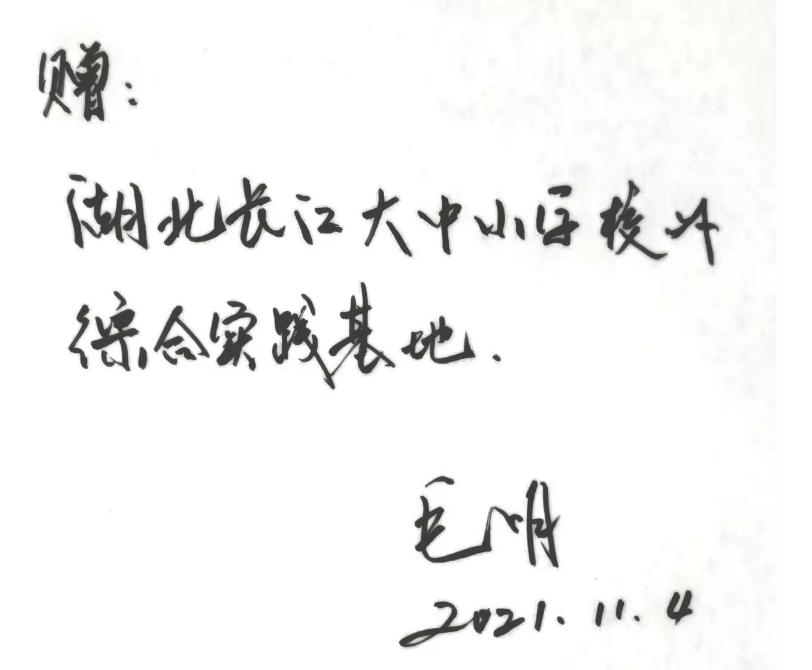 赠:
湖北长江大中小学校外
综合实践基地.
毛明
2021.11.4